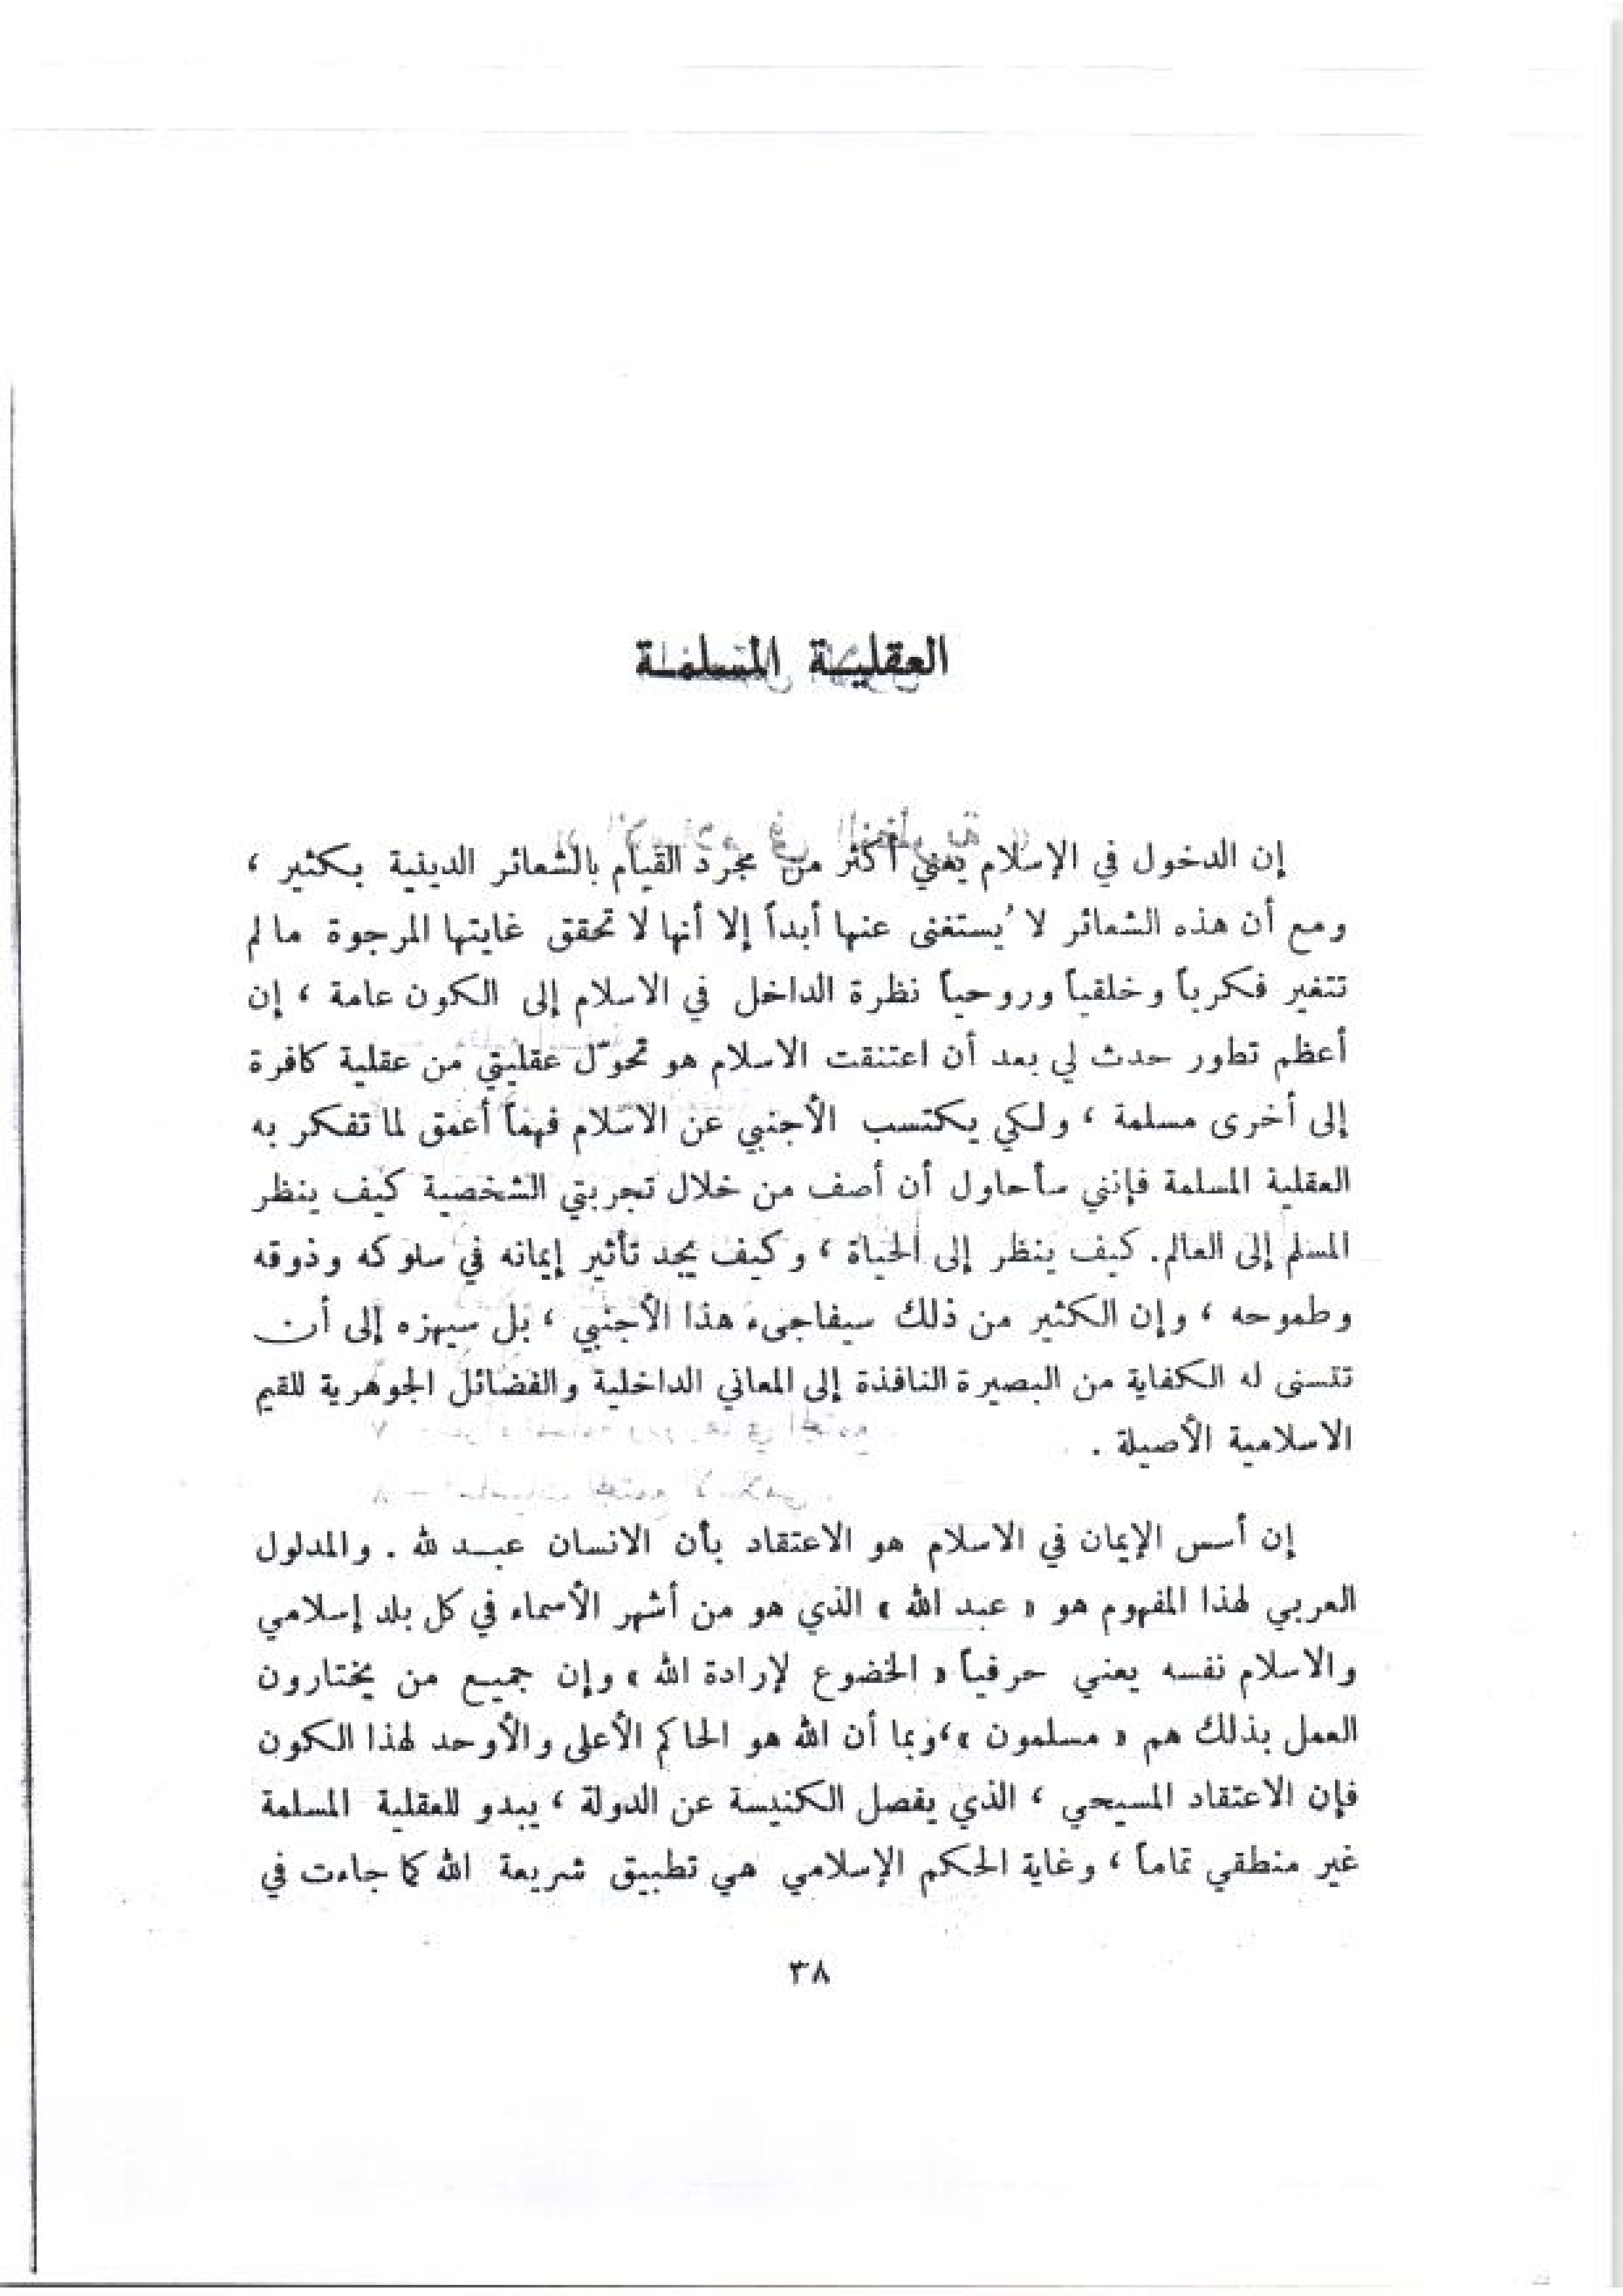 العقلية المسلمة
إن الدخول في الإسلام يعني أكثر من مجرد القيام بالشعائر الدينية بكثير ،
ومع أن هذه الشعائر لا يُستغنى عنها أبداً إلا أنها لا تحقق غايتها المرجوة ما لم
تتغير فكرياً وخلقياً وروحياً نظرة الداخل في الاسلام إلى الكون عامة ، إن
أعظم تطور حدث لي بعد أن اعتنقت الاسلام هو تحوّل عقليتي من عقلية كافرة
إلى أخرى مسلمة ، ولكي يكتسب الأجنبي عن الاسلام فهماً أعمق لما تفكر به
العقلية المسلمة فإنني سأحاول أن أصف من خلال تجربتي الشخصية كيف ينظر
المسلم إلى العالم. كيف ينظر إلى الحياة ، وكيف يجد تأثير إيمانه في سلوكه وذوقه
وطموحه ، وإن الكثير من ذلك سيفاجىء هذا الأجنبي ، بل سيهزه إلى أن
تتسنى له الكفاية من البصيرة النافذة إلى المعاني الداخلية والفضائل الجوهرية للقيم
الاسلامية الأصيلة .
إن أسس الإيمان في الاسلام هو الاعتقاد بأن الانسان عبد لله . والمدلول
العربي لهذا المفهوم هو « عبد الله » الذي هو من أشهر الأسماء في كل بلد إسلامي
والاسلام نفسه يعني حرفياً « الخضوع لإرادة الله » وإن جميع من يختارون
العمل بذلك هم « مسلمون »، وبما أن الله هو الحاكم الأعلى والأوحد لهذا الكون
فإن الاعتقاد المسيحي ، الذي يفصل الكنيسة عن الدولة ، يبدو للعقلية المسلمة
غير منطقي تماماً ، وغاية الحكم الإسلامي هي تطبيق شريعة الله كما جاءت في
٣٨